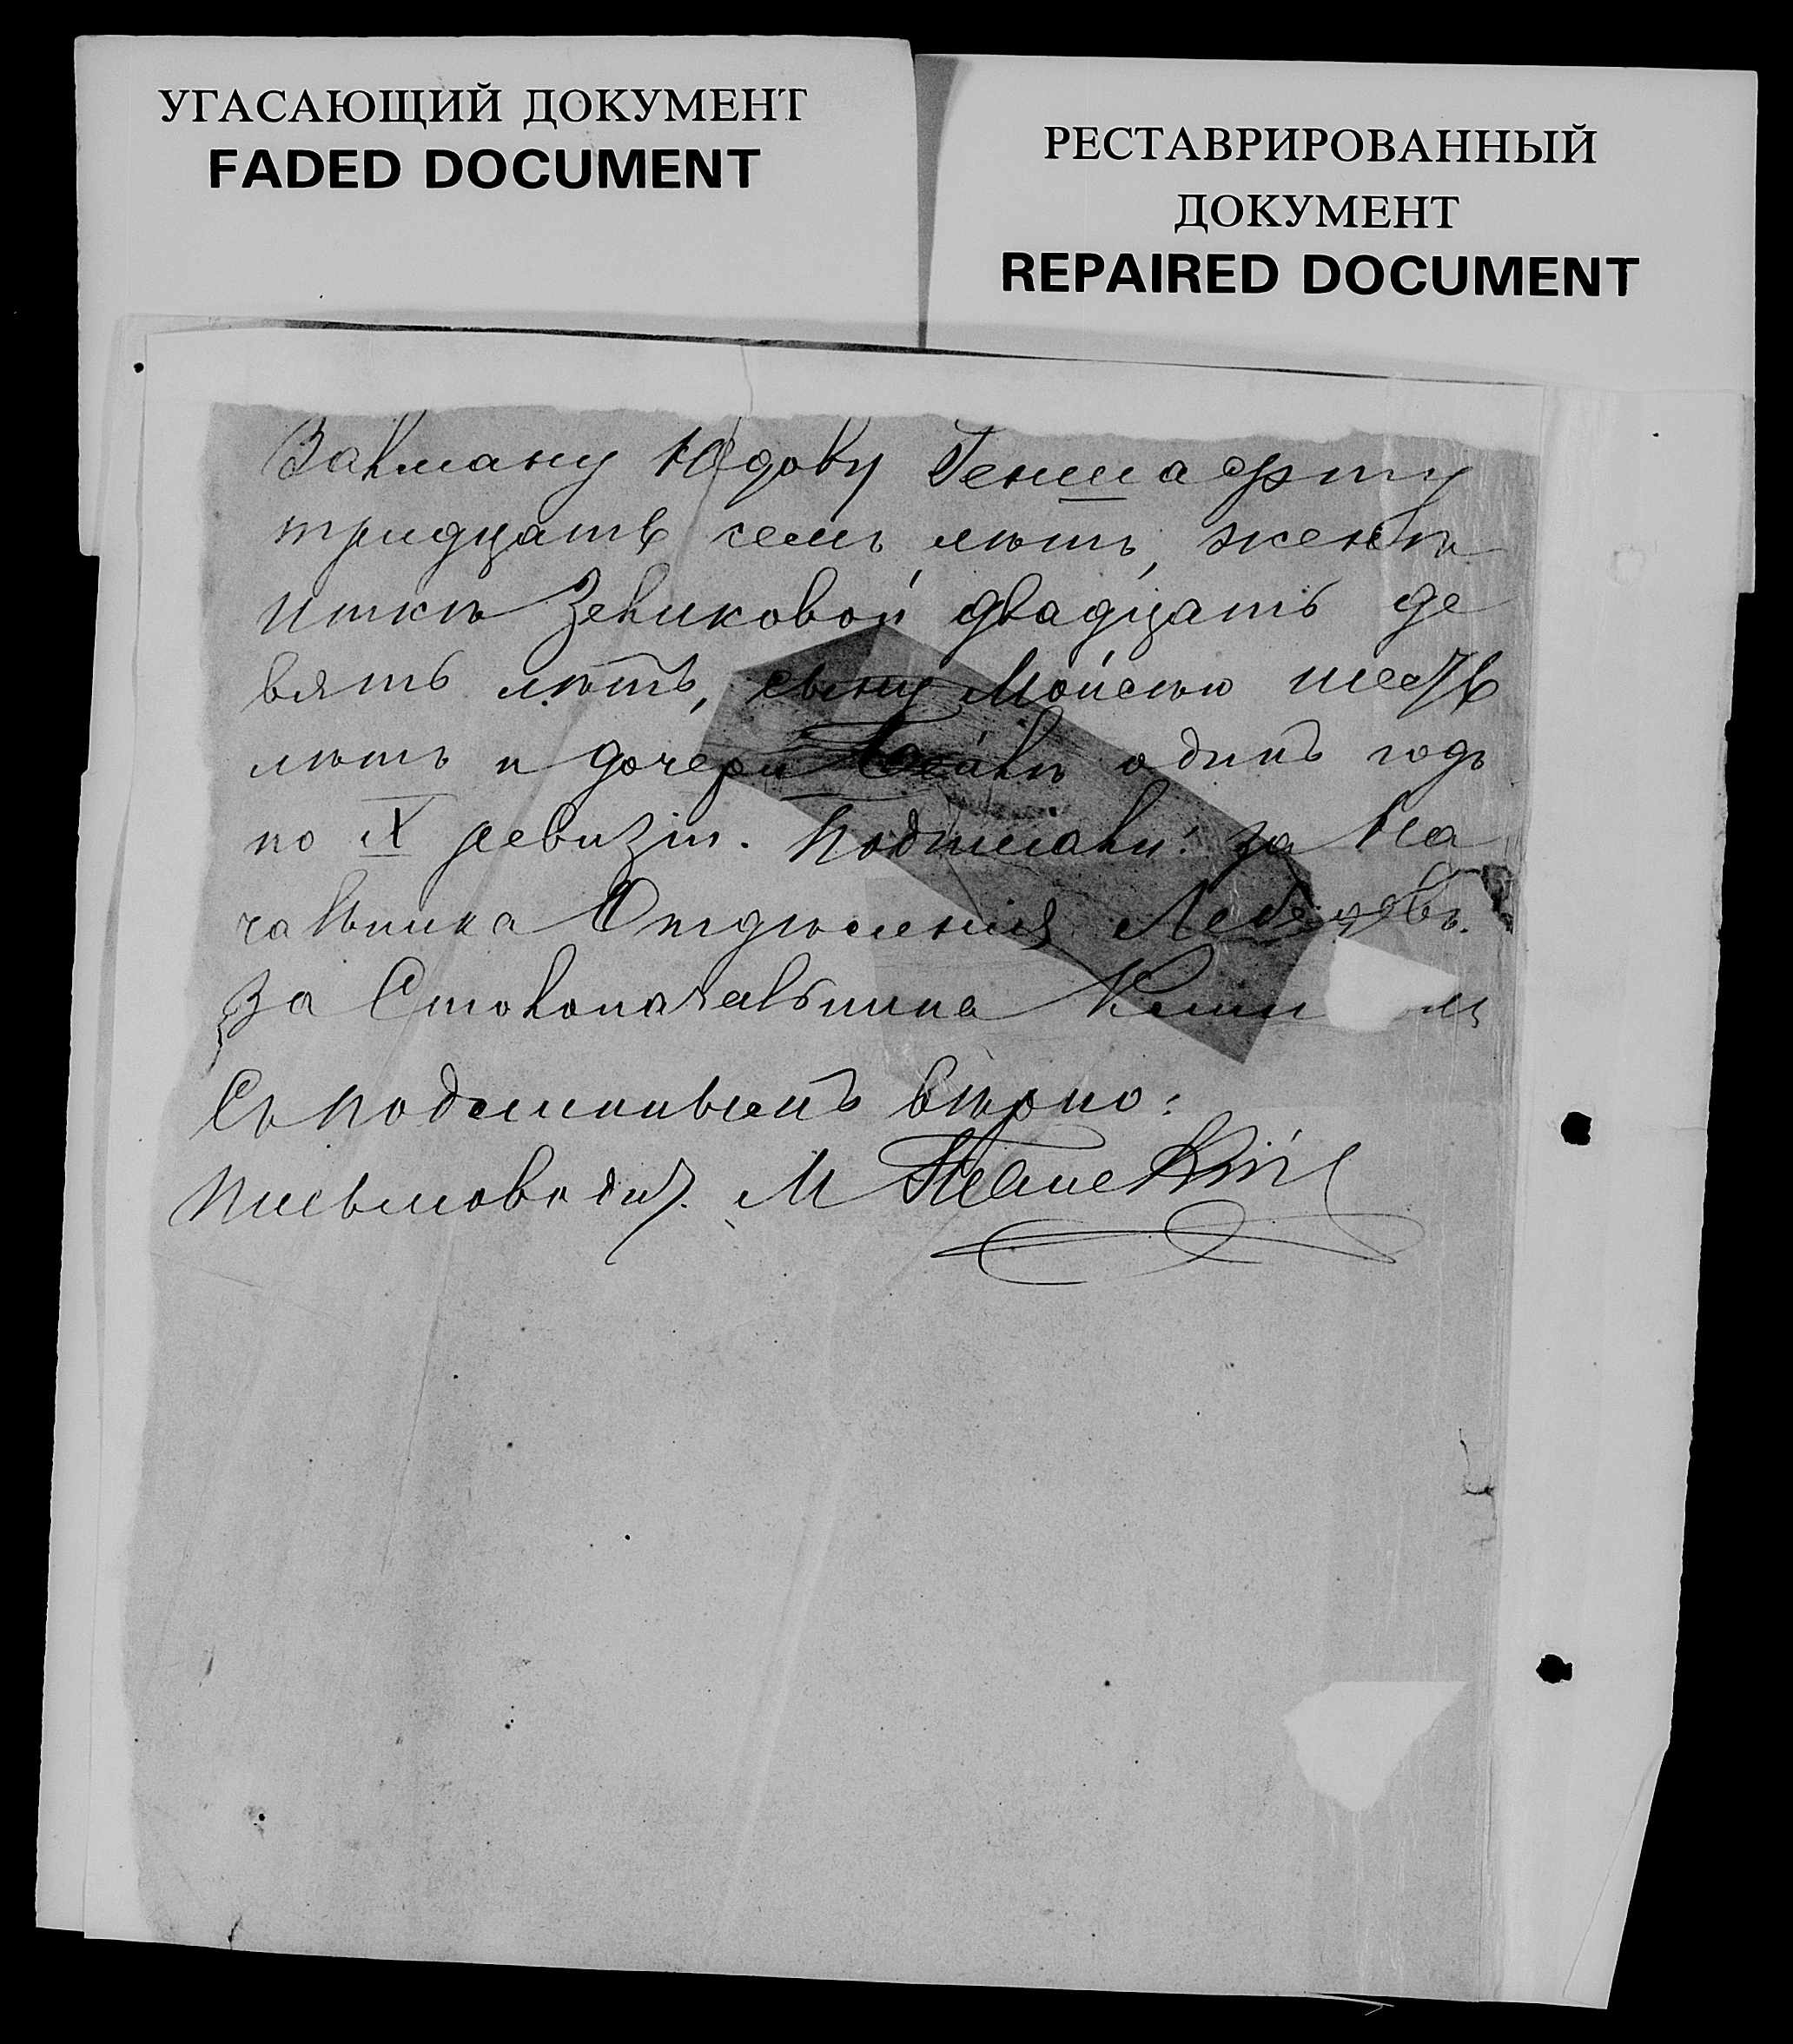 УГАСАЮЩИЙ ДОКУМЕНТ
FADED DOCUMENT
РЕСТАВРИРОВАННЫЙ
ДОКУМЕНТ
REPAIRED DOCUMENT
Залману Юдову Геншафту
тридцать семь лѣтъ, женѣ
Иткѣ Зеликовой двадцать де
вять лѣтъ, сыну Мойсею шесть
лѣтъ и дочери Бейлѣ одинъ годъ
по IX ревизіи. Подписали: за На
чальника Отдѣленія Лебедевъ.
За Столоначальника
Съ подлиннымъ вѣрно:
Письмоводит. М